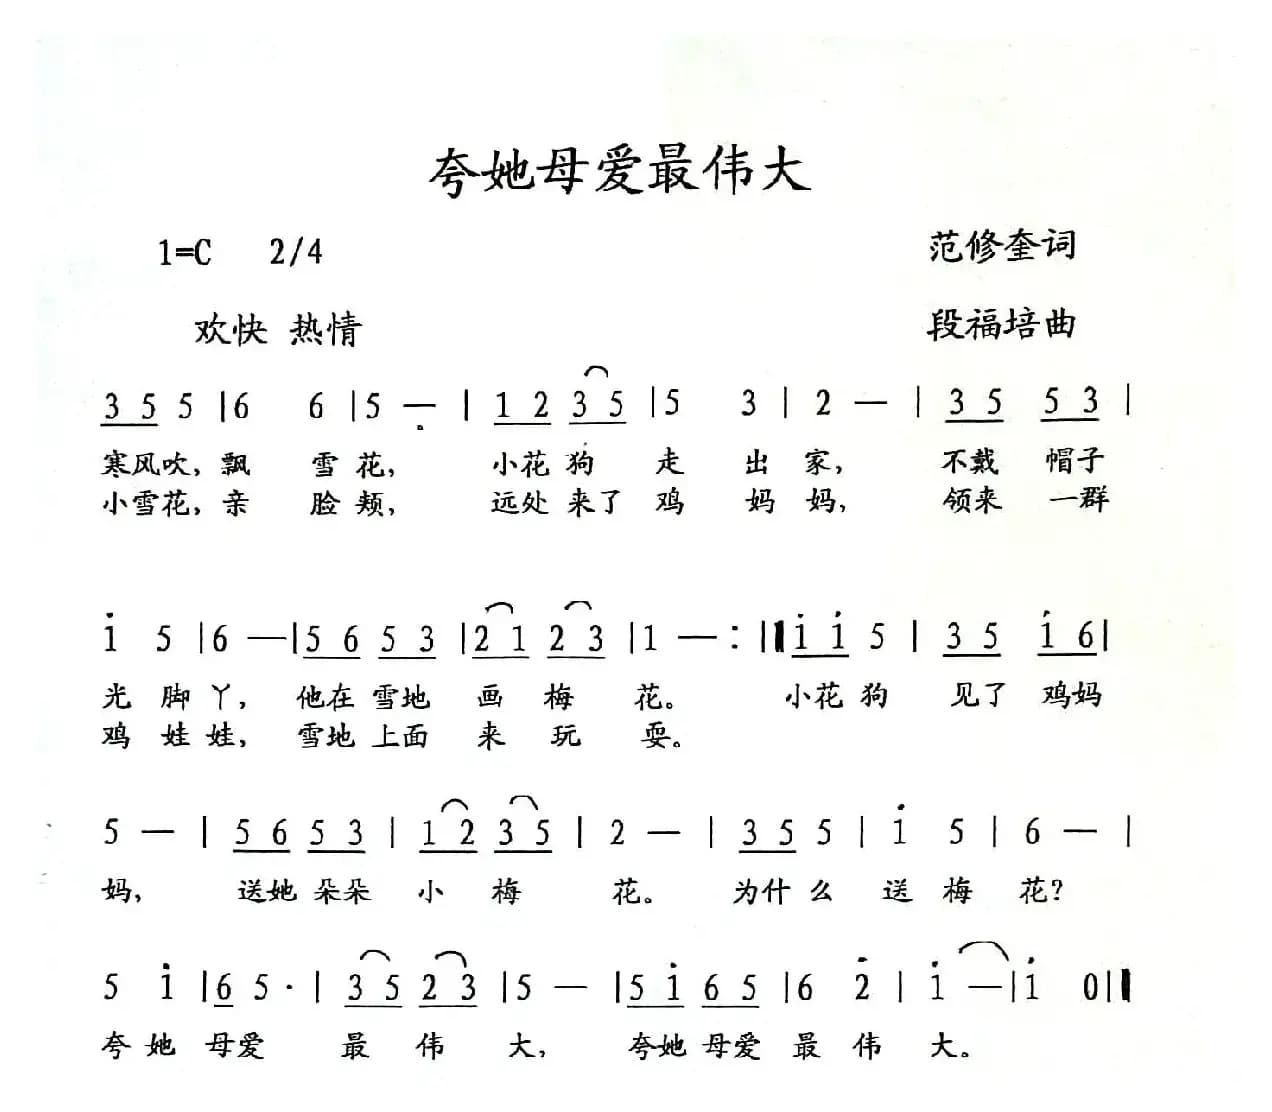 夸她母爱最伟大
1=C 2/4 范修奎词
欢快 热情 段福培曲
3 5 5 |6 6 |5 — | 1 2 3 5 |5 3 | 2 — | 3 5 5 3 |
寒风吹，飘 雪 花， 小花 狗 走 出 家， 不戴 帽子
小雪花，亲 脸 颊， 远处 来了 鸡 妈 妈， 领来 一群
i 5 |6 —|5 6 5 3 |2 1 2 3 |1 —:‖ i i 5 | 3 5 i 6|
光 脚 丫， 他在 雪地 画 梅 花。 小花 狗 见了 鸡妈
鸡 娃 娃， 雪地 上面 来 玩 耍。
5 — | 5 6 5 3 | 1 2 3 5 | 2 — | 3 5 5 | i 5 | 6 — |
妈， 送她 朵朵 小 梅 花。 为什 么 送 梅 花？
5 i |6 5· | 3 5 2 3 |5 — |5 i 6 5 |6 2̇ | i —|i 0‖
夸 她 母爱 最 伟 大， 夸她 母爱 最 伟 大。